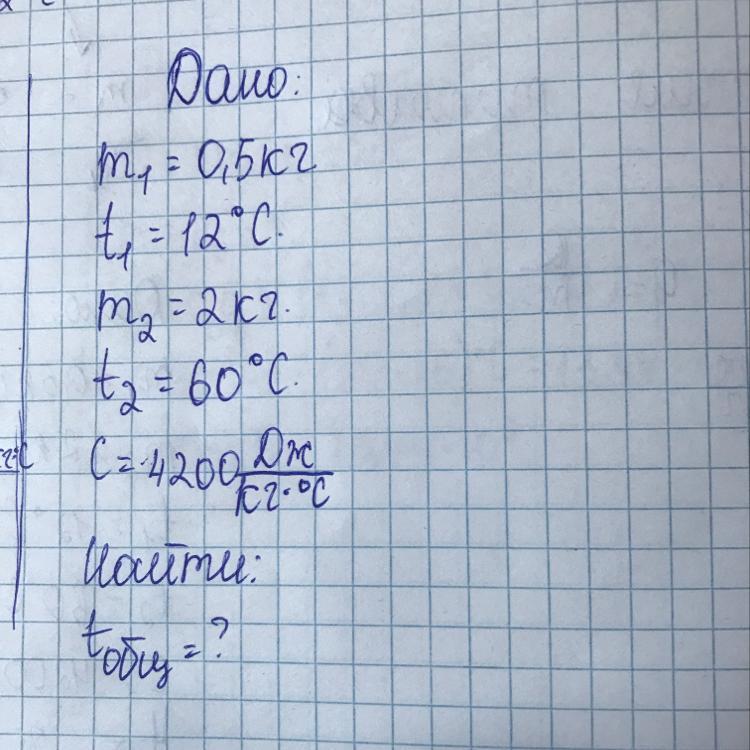 Дано:
m₁ = 0,5кг
t₁ = 12°C.
m₂ = 2кг.
t₂ = 60°C.
C = 4200 Дж/кг·°C
Найти:
tобщ = ?